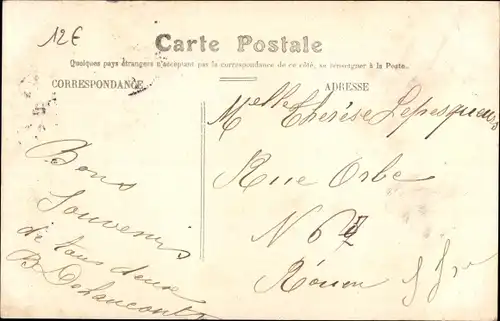 12€
Carte Postale
Quelques pays étrangers n'acceptent pas la correspondance de ce côté, se renseigner à la Poste.
CORRESPONDANCE
ADRESSE
Melle Thérèse Lepesqueur
Rue Orbe
N 6
Rouen
Bons
Souvenirs
de tous deux
B